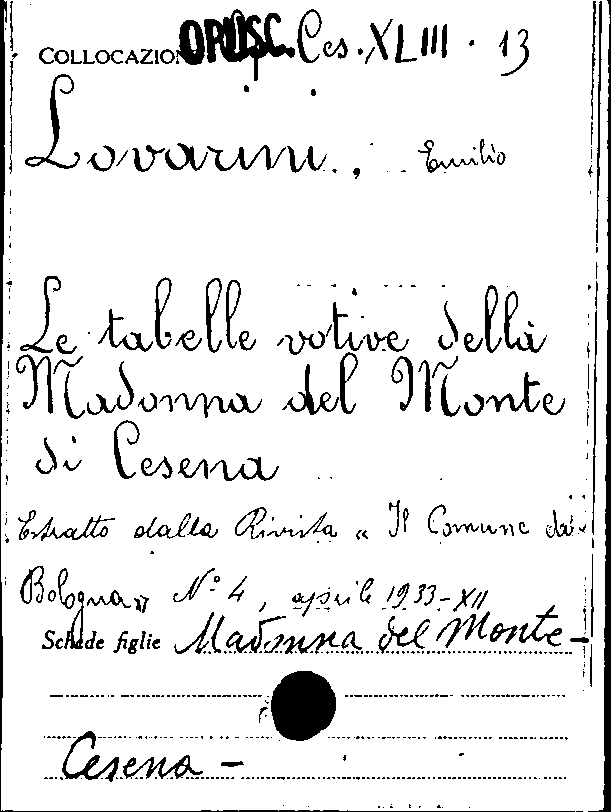 COLLOCAZION OPUSC. Ces. XLIII. 13
Lovarini, Emilio
Le tabelle votive della
Madonna del Monte
di Cesena
Estratto dalla Rivista "Il Comune di
Bologna" N° 4, aprile 1933-XII
Schede figlie Madonna del Monte-
Cesena -